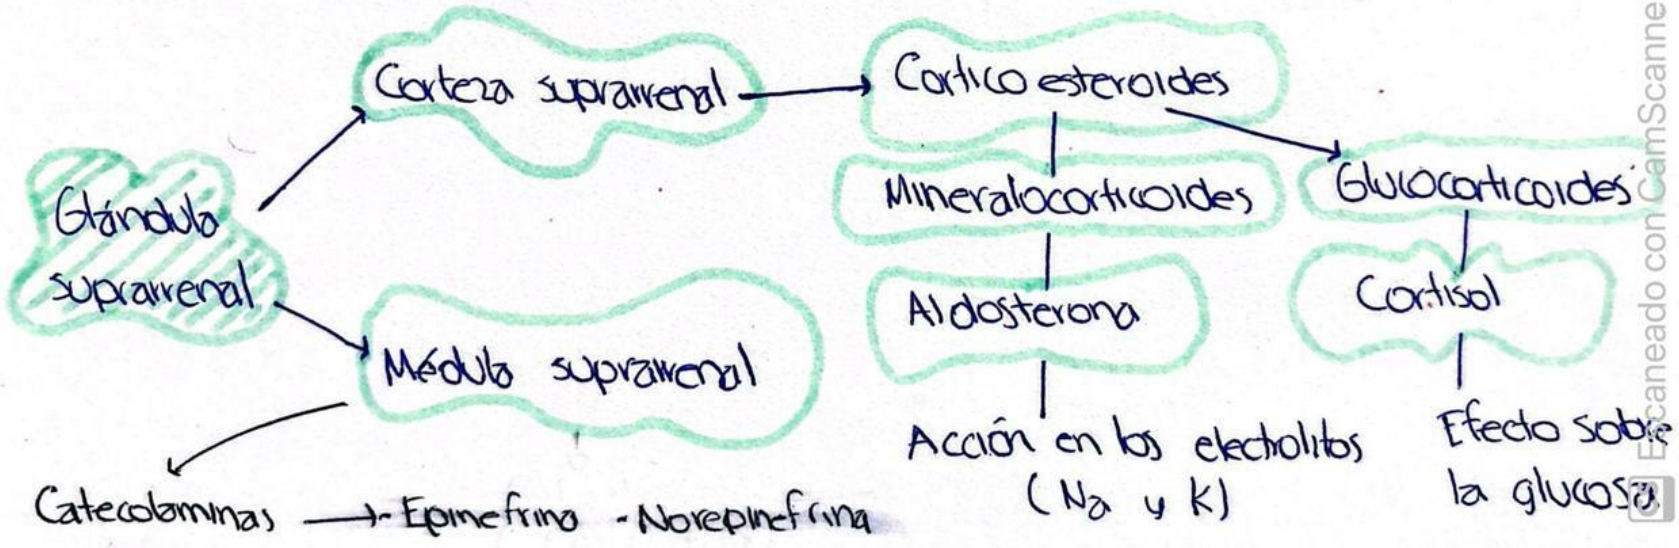 Corteza suprarrenal
Corticoesteroides
Glándula
suprarrenal
Mineralocorticoides
Glucocorticoides
Aldosterona
Cortisol
Médula suprarrenal
Acción en los electrolitos
(Na y K)
Efecto sobre
la glucosa.
Catecolaminas → - Epinefrina - Norepinefrina
Escaneado con CamScanne